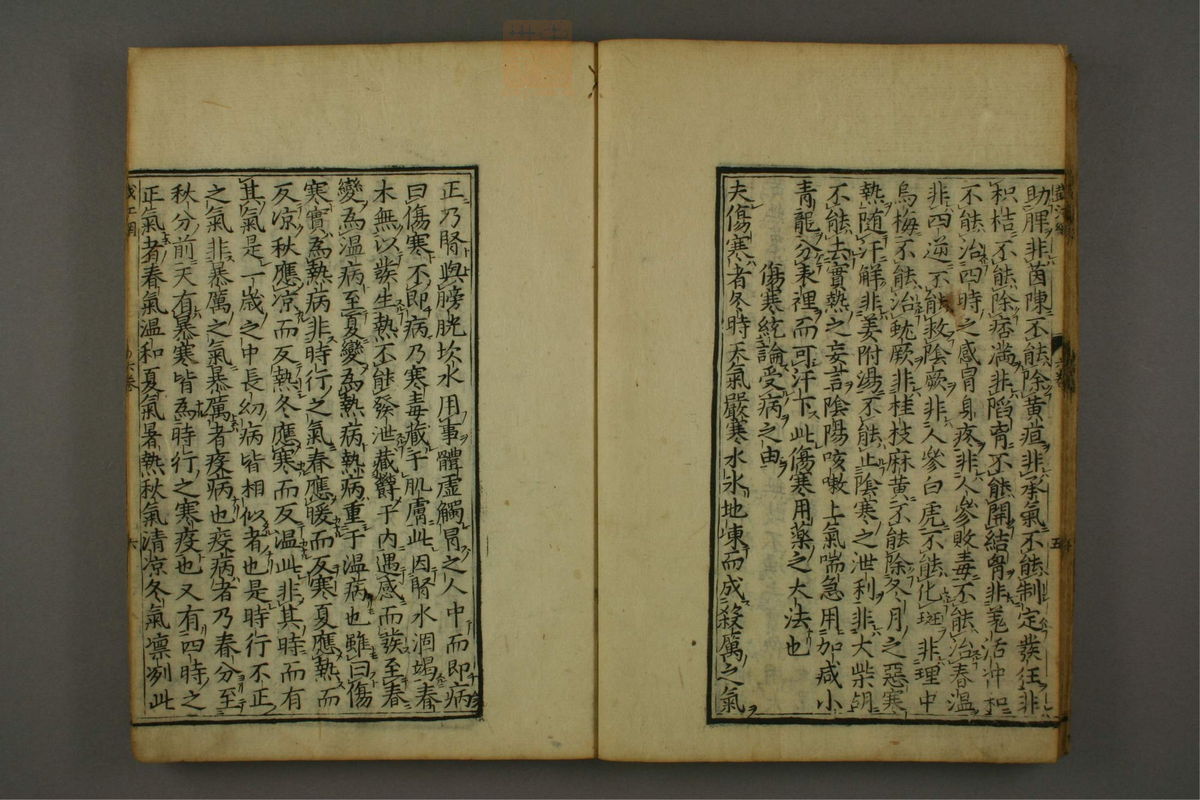 助脾非茵陳不能除黃疸非承氣不能制定發狂非
枳桔不能除痞滿非陷胷不能開結胷非羌活沖和
不能治四時之感冒身疼非人參敗毒不能治春温
非四逆不能救陰厥非人參白虎不能化斑非理中
烏梅不能治蚘厥非桂枝麻黃不能除冬月之惡寒
熱随汗解非姜附湯不能止陰寒之泄利非大柴胡
不能去實熱之妄言陰陽咳嗽上氣喘急用加减小
青龍分表裡而可汗下此傷寒用藥之大法也
傷寒統論受病之由
夫傷寒者冬時天氣嚴寒水氷地凍而成殺厲之氣
正乃腎與膀胱坎水用事體虚觸冒之人中而即病
曰傷寒不即病乃寒毒藏于肌膚此因腎水涸竭春
木無以發生熱不能發泄藏欝于内遇感而發至春
變為温病至夏變為熱病熱病重于温病也雖曰傷
寒實為熱病非時行之氣春應暖而反寒夏應熱而
反凉秋應凉而反熱冬應寒而反温此非其時而有
其氣是一歳之中長幼病皆相似者也是時行不正
之氣非暴厲之氣暴厲者疫病也疫病者乃春分至
秋分前天有暴寒皆為時行之寒疫也又有四時之
正氣者春氣温和夏氣暑熱秋氣清凉冬氣凛冽此
六